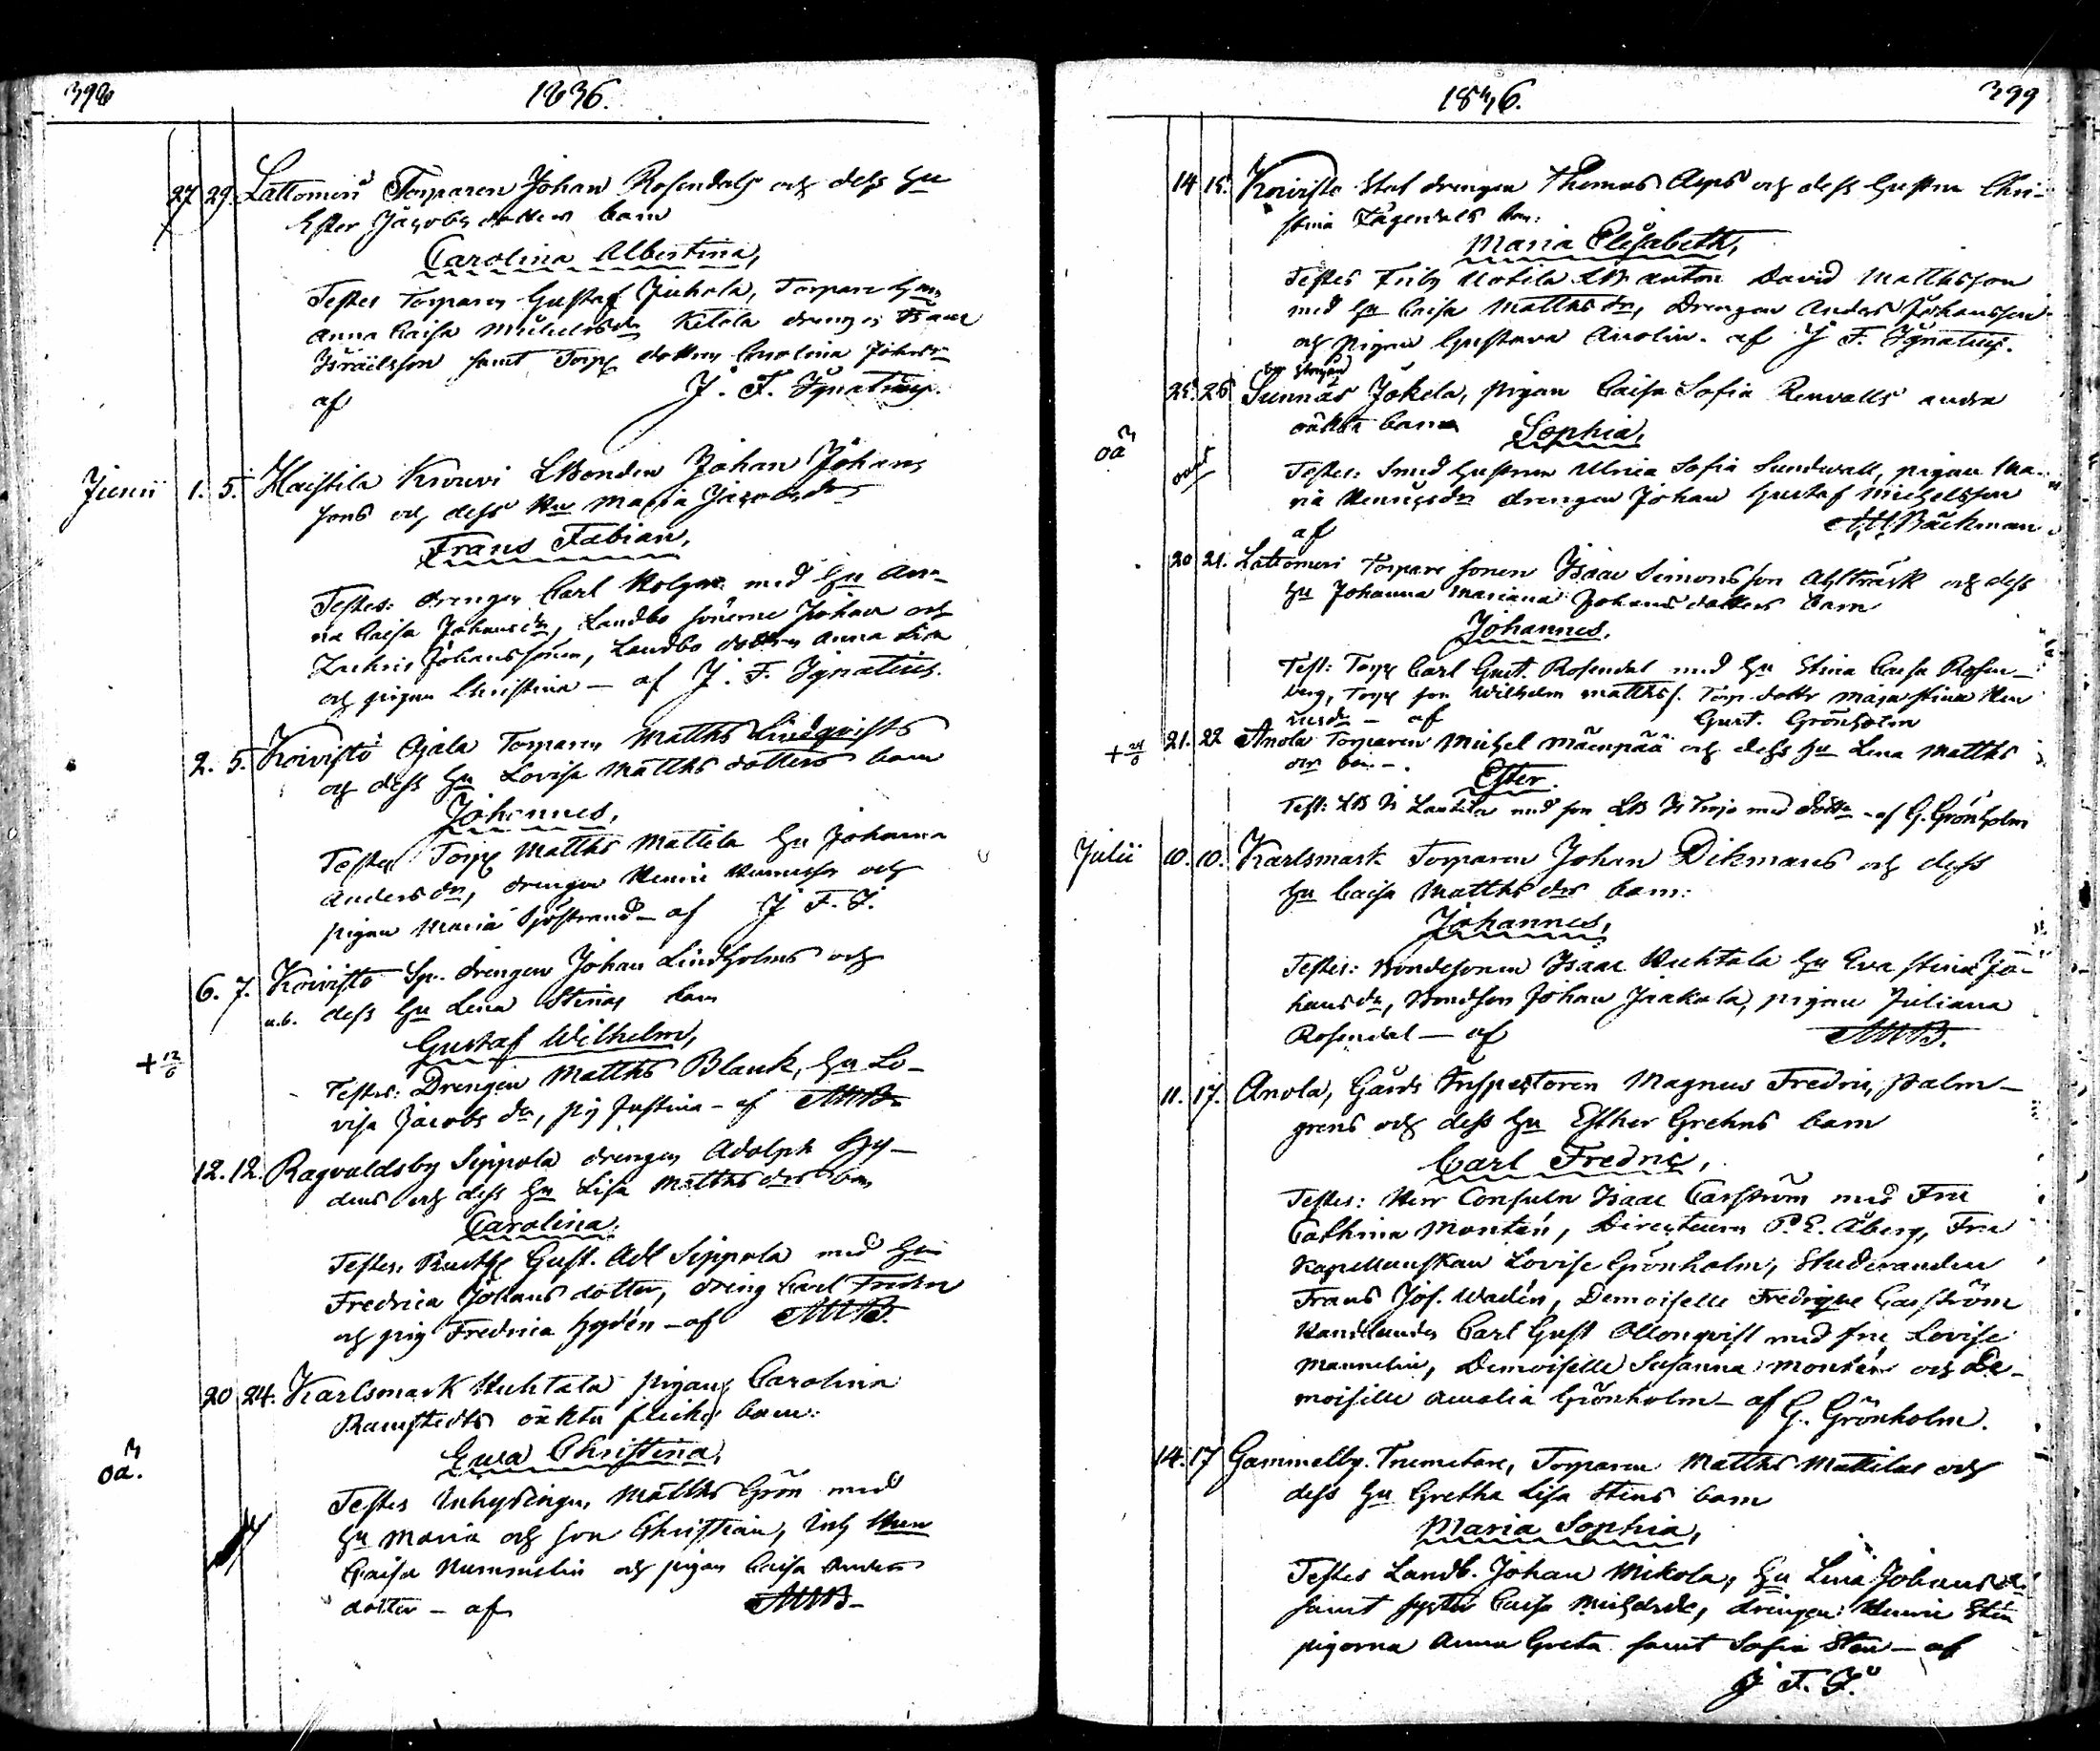 398
1836.
27 29. Lattomeri Torparen Johan Rosendals och dess hu
Ester Jacobsdotters barn
Carolina Albertina,
Testes Torparen Gustaf Juhola, Torpare hun
Anna Caisa Michelsdr Ketola drengen Isaac
Israelsson samt Torp dottren Carolina Johansdr
af J. F. Ignatius.
Junii 1. 5. Haistila Krouvi LBonden Johan Johans
sons och dess Hu Maria Jacobsdrs
Frans Fabian,
Testes: drengen Carl Holgren med hu An-
na Caisa Johansdr, Landbo sönerne Johan och
Zachris Johanssöner, Landbo dottren Anna Lisa
och pigan Christina – af J. F. Ignatius.
2. 5. Koivisto Ojala Torparen Matths Lindqvists
och dess hu Lovisa Matths dotters barn
Johannes,
Testes Torp Matths Mattila hu Johanna
Andersdr, drengen Henric Henricsson och
pigan Maria Sjöstrand – af J. F. I.
6. 7. Koivisto Sp. drengen Johan Lindholms och
u.b. dess hu Lena Stinas barn
Gustaf Wilhelm,
+ 12/6
Testes: Drengen Matths Blank, hu Lo-
visa Jacobs dr, pig Justina – af AWB
12. 12. Ragvaldsby Seppola drengen Adolph Hy-
dens och dess hu Lisa Matths drs barn
Carolina.
Testes: Rusth Gust. Adl Seppola med hu
Fredrica Johans dotter, dreng Carl
och pig Fredrica Hydén – af AWB.
20 24. Karlsmark Huhtala pigans Carolina
Ramstedts oäkta flicke barn:
Ewa Christina,
oä.
Testes Inhysingen Matths Grön med
hu Maria och son Christian, Inh
Caisa Nummelin och pigan Caisa Anders
dotter – af AWB
1836.
399
14 15. Koivisto Stat drengen Thomas Asps och dess hustru Chri-
stina Fågervals barn:
Maria Elisabeth,
Testes Friby Uotila LB Anton David Matthsson
med hu Caisa Matthsdr, Drengen Anders Johansson
och pigan Gustava Anolin. af J. F. Ignatius.
25. 26 Sunnäs Jokela, pigan Caisa Sofia Renvalls andra
oäkta barn
oä
Sophia,
Testes: Smed hustrun Ulrica Sofia Sundwall, pigan Ma-
ria Henricsdr drengen Johan Gustaf Michelsson
af AWBäckman
20 21. Lattomeri Torpare sonen Isaac Simonsson Ahlträsk och dess
hu Johanna Mariana Johans dotters barn
Johannes.
Test: Torp Carl Gust. Rosendal med hu Stina Caisa Rosen-
berg, Torp son Wilhelm Matthss. Torp. dottr Maja Stina Hen
ricsdr – af Gust. Grönholm
+ 24/6 21. 22 Anola Torparen Michel Mäenpää och dess hu Lena Matths
drs barn –
Ester.
Test: LB Is Lautila med son LB Is med Dotter – af G. Grönholm
Julii 10. 10. Karlsmark Torparen Johan Dikmans och dess
hu Caisa Matths drs barn:
Johannes,
Testes: Bondesonen Isaac Huhtala hu Eva Stina Jo-
hansdr, Bondson Johan Jaakola, pigan Juliana
Rosendal – af AWB.
11. 17. Anola, Gårds Inspectoren Magnus Fredric Palm-
grens och dess hu Esther Grehns barn
Carl Fredric,
Testes: Herr Consuln Isaac Carström med Fru
Cathrina Montén, Directeurn P. E. Åberg, Fru
Kapellanskan Lovise Grönholm, Studeranden
Frans Jos. Wadén, Demoiselle Fredrique Carström
Handlanden Carl Gust Ollonqvist med fru Lovise
Mannelin, Demoiselle Susanna Montén och De-
moiselle Amalia Grönholm – af G. Grönholm.
14. 17 Gammelby. Trumetare, Torparen Matths Mattilas och
dess hu Gretha Lisa Stens barn
Maria Sophia,
Testes Landb. Johan Mikola, hu Lena Johansdr
samt syster Caisa Michelsdr, drengen Henric Sten
pigorna Anna Greta samt Sofia Sten – af
J. F. I.